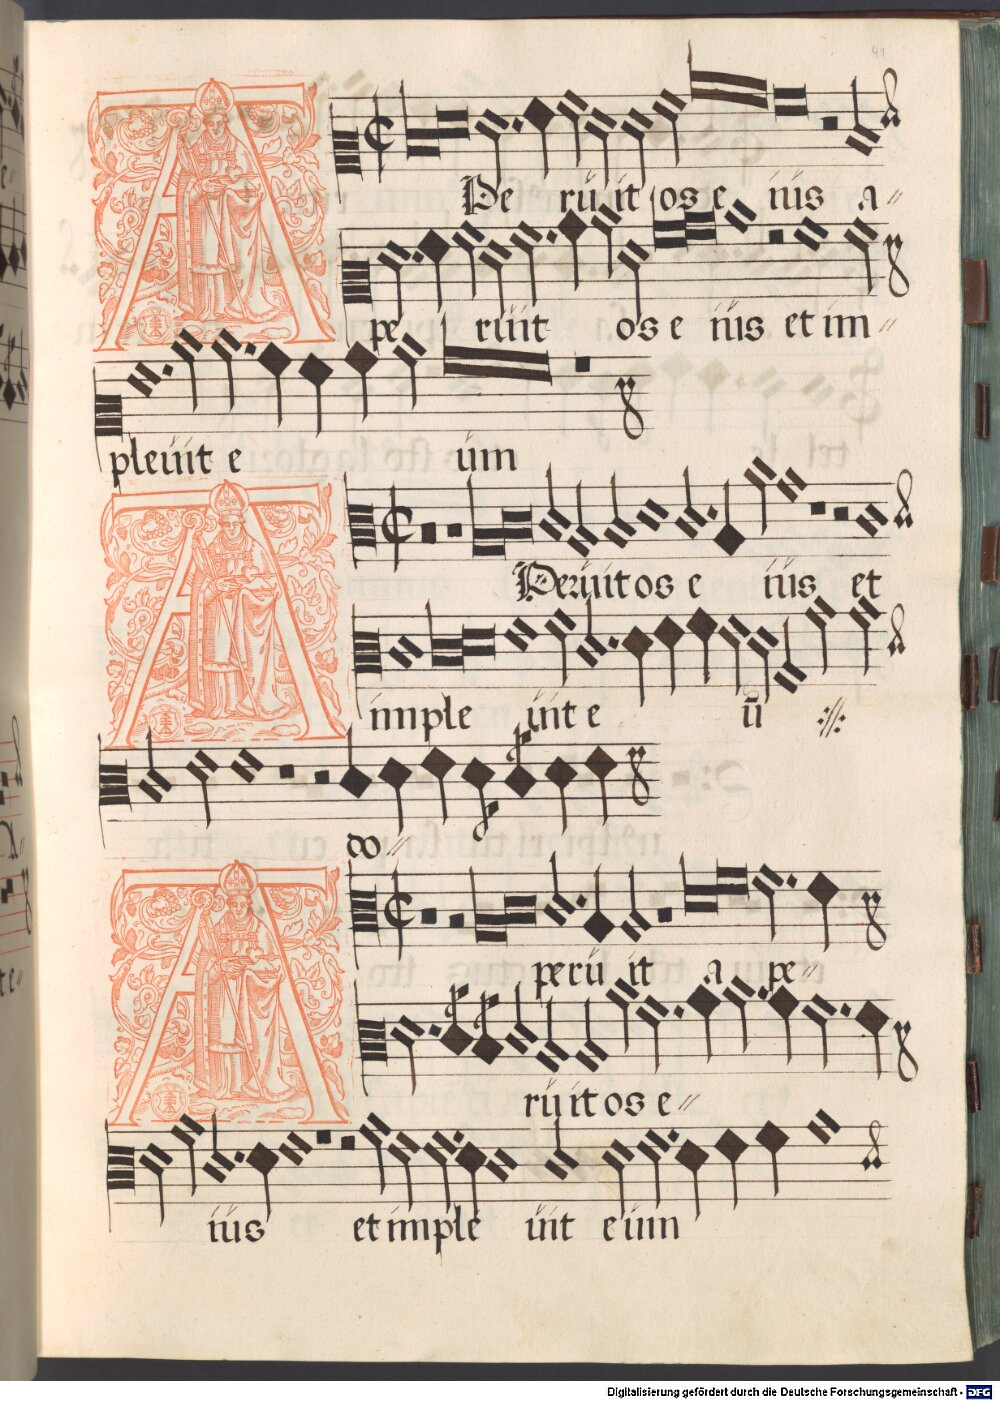 41
APe ruit os e ius a
pe ruit os e ius et im
pleuit e um
APeruit os e ius et
imple uit e ū
do
A peru it a pe
ruit os e
ius et imple uit e um
Digitalisierung gefördert durch die Deutsche Forschungsgemeinschaft - DFG